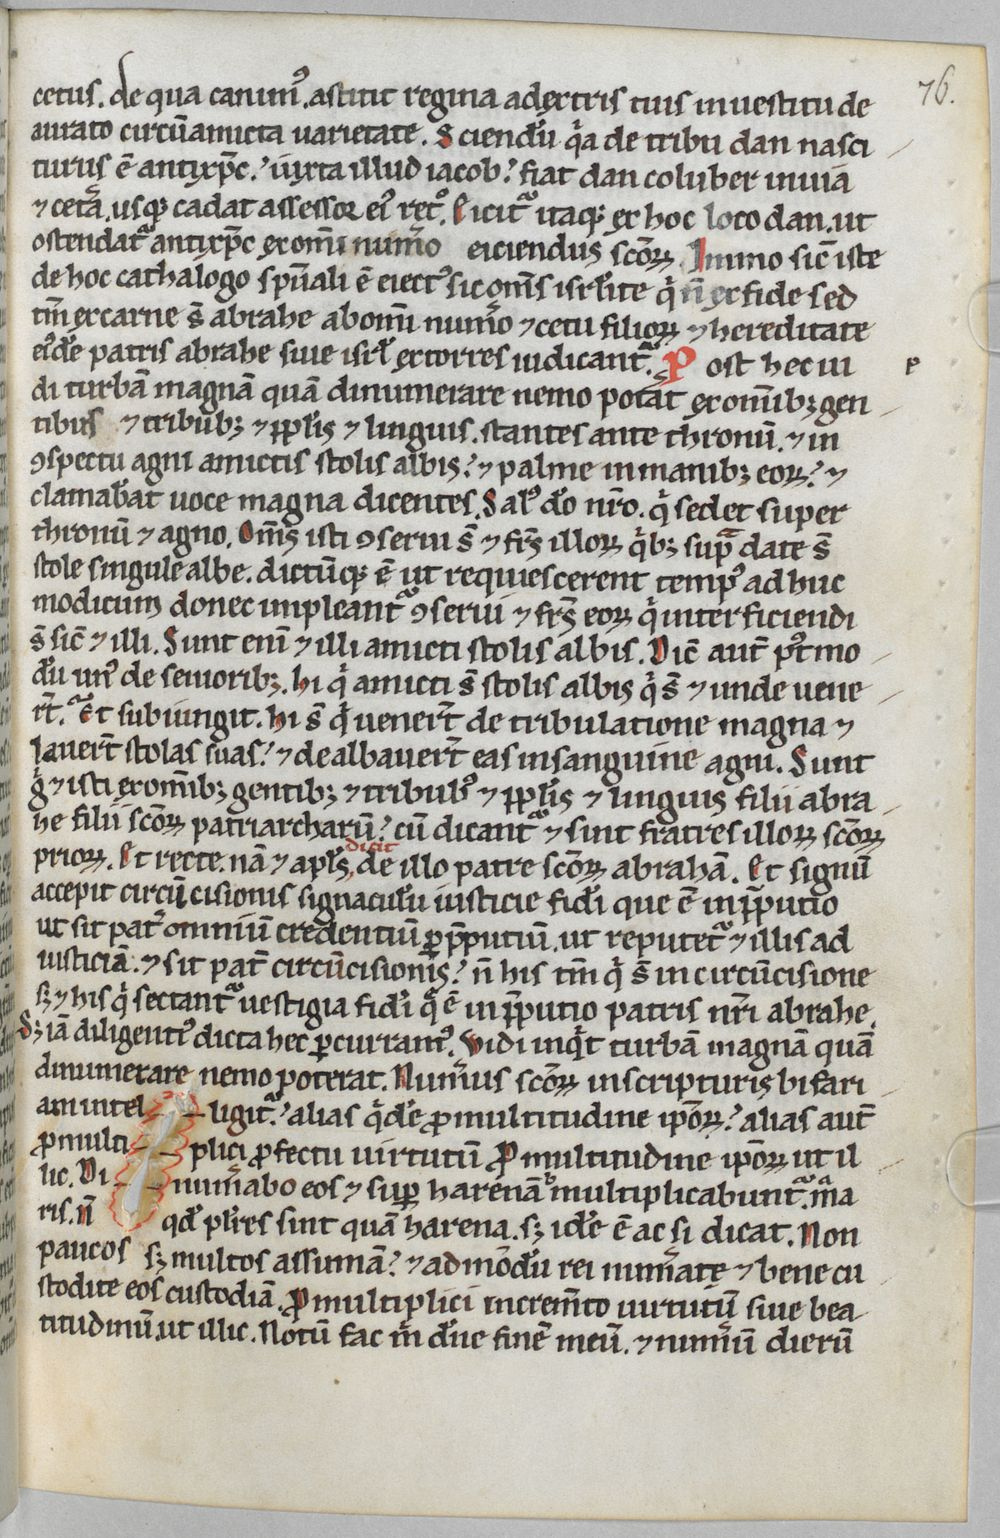 76.
cetus. de qua canim᷒. astitit regina a dextris tuis in uestitu de
aurato circūamicta uarietate. Sciendū qͥa de tribu dan nasci
turus ē antixp̄c. iuxta illud iacob. fiat dan coluber in uia
⁊ cetͣa. usqꝫ cadat assessor ei᷒ retͦ. Eicitͬ itaqꝫ ex hoc loco dan. ut
ostendatͬ antixp̄c ex om̄i num̄o eiciendus sc̄oꝝ. Immo sic̄ iste
de hoc cathalogo sp̄uali ē eiect᷒ sic om̄s isrl̄ite qͥ n̄ ex fide sed
tm̄ ex carne s̄ abrahe ab om̄i num̄o ⁊ cetu filioꝝ ⁊ hereditate
ei᷒dē patris abrahe siue isrl̄ extorres iudicantͬ. Post hec ui
p
di turbā magnā quā dinumerare nemo potāt ex om̄ibꝫ gen
tibus ⁊ tribubꝫ ⁊ ppl̄is ⁊ linguis. stantes ante thronū. ⁊ in
ꝯspectu agni amictis stolis albis. ⁊ palme in manibꝫ eoꝝ. ⁊
clamabāt uoce magna dicentes. Sal᷒ dō nr̄o. qͥ sedet super
thronū ⁊ agno. Om̄s isti ꝯserui s̄ ⁊ fr̄s illoꝝ qͥbꝫ supͣ date s̄
stole singule albe. dictūqꝫ ē ut requiescerent temp᷒ adhuc
modicum donec impleantͬ ꝯserui ⁊ fr̄s eoꝝ qͥ interficiendi
s̄ sic̄ ⁊ illi. Sunt eni᷒ ⁊ illi amicti stolis albis. Dic̄ aut̄ p᷒t mo
dū un᷒ de senioribꝫ. hi qͥ amicti s̄ stolis albis qͥ s̄ ⁊ unde uene
rt̄. Et subiungit. hi s̄ qͥ uenert̄ de tribulatione magna ⁊
lauert̄ stolas suas. ⁊ dealbauert̄ eas in sanguine agni. Sunt
gͦ ⁊ isti ex om̄ibꝫ gentibꝫ ⁊ tribub᷒ ⁊ ppl̄is ⁊ linguis filii abra
he filii sc̄oꝝ patriarcharū. cū dicantͬ ⁊ sint fratres illoꝝ sc̄oꝝ
prioꝝ. Et recte. nā ⁊ apl̄s dicit de illo patre sc̄oꝝ abrahā. Et signū
accepit circūcisionis signaculū iusticie fidi que ē in p̄putio
ut sit pat̄ omniū credentiū ꝑ p̄putiū. ut reputetͬ ⁊ illis ad
iusticiā. ⁊ sit pat̄ circūcisionis. n̄ his tm̄ qͥ s̄ in circūcisione
sꝫ ⁊ his qͥ sectantͬ uestigia fidi qͤ ē in p̄putio patris nr̄i abrahe.
Sꝫ iā diligent᷒ dicta hec ꝑcurrant᷒. Vidi inqͥt turbā magnā quā
dinumerare nemo poterat. Num̄us sc̄oꝝ in scripturis bifari
am intelligitͬ. alias qͥdē ꝓ multitudine ip̄oꝝ. alias aut̄
ꝓ multiplici ꝓfectu uirtutū. Ꝓ multitudine ip̄oꝝ ut il
lic. Dinum̄abo eos ⁊ suꝑ harenā multiplicabuntͬ. mͣa
ris. n̄ qd̄ pl̄res sint quā harena. sꝫ idē ē ac si dicat. Non
paucos sꝫ multos assumā. ⁊ admodū rei num̄ate ⁊ bene cu
stodite eos custodiā. Ꝓ multiplici increm̄to uirtutū siue bea
titudinū. ut illic. Notū fac m̄ dn̄e finē meū. ⁊ num̄ū dierū